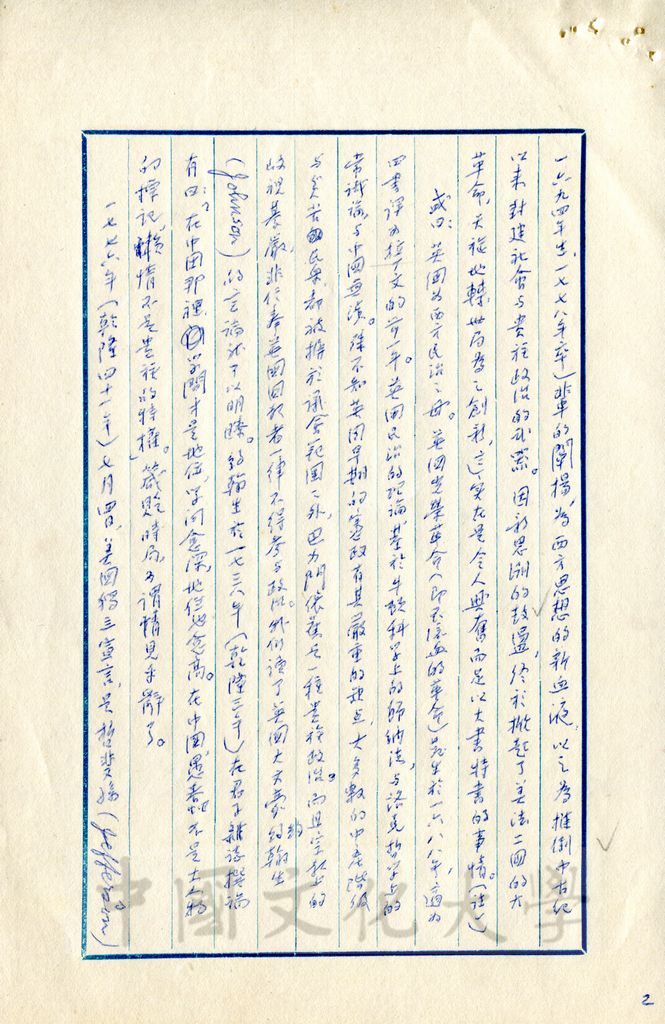 一六九四年生,一七七八年卒)輩的闡揚,為西方思想的新血液,以之為推倒中古紀
以來封建社會與貴族政治的武器。因新思潮的鼓盪,終於掀起了美法二國的大
革命,天旋地轉,世局為之創新,這實在是令人興奮而足以大書特書的事情。(註一)
或曰:英國為西方民治之母。英國光榮革命(即不流血的革命)發生於一六八八年,適為
四書譯為拉丁文的前一年。英國民治的理論,基於牛頓科學上的歸納法,與洛克哲學上的
常識論,與中國無涉。殊不知英國早期的憲政有其嚴重的缺點,大多數的中產階級
與貧苦的民眾都被擯於議會範圍之外,巴力門依舊是一種貴族政治。而且宗教上的
歧視綦嚴,非信奉英國國教者一律不得參與政治。我們讀了英國大文豪約翰生
(Johnson)的言論,便可以明瞭。約翰生於一七三八年(乾隆三年)在君子雜誌撰稿
有曰:「在中國那裡,學問才是地位,學問愈深,地位也愈高。在中國,愚者並不是大人物
的標記,懶惰不是貴族的特權」。箴貶時局,可謂情見乎辭了。
一七七六年(乾隆四十一年)七月四日,美國獨立宣言,是哲斐孫(Jefferson)
2
中國文化大學